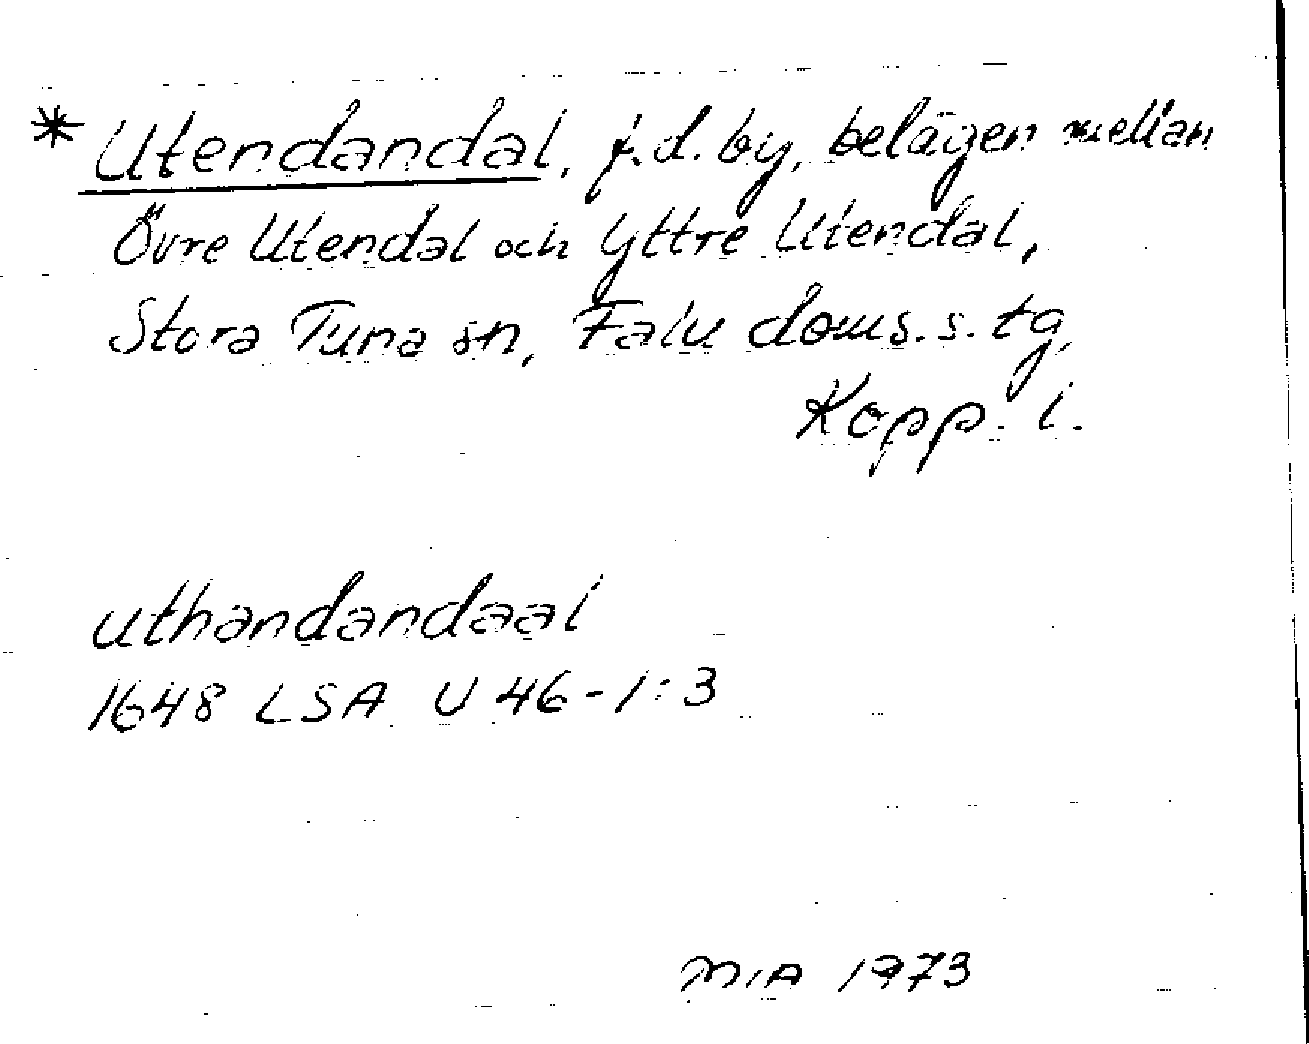 * Utendandal, f.d. by, belägen mellan
Övre Utendal och Yttre Utendal,
Stora Tuna sn, Falu doms. s. tg,
Kopp. l.
uthandandaal
1648 LSA U 46-1:3
MIA 1973